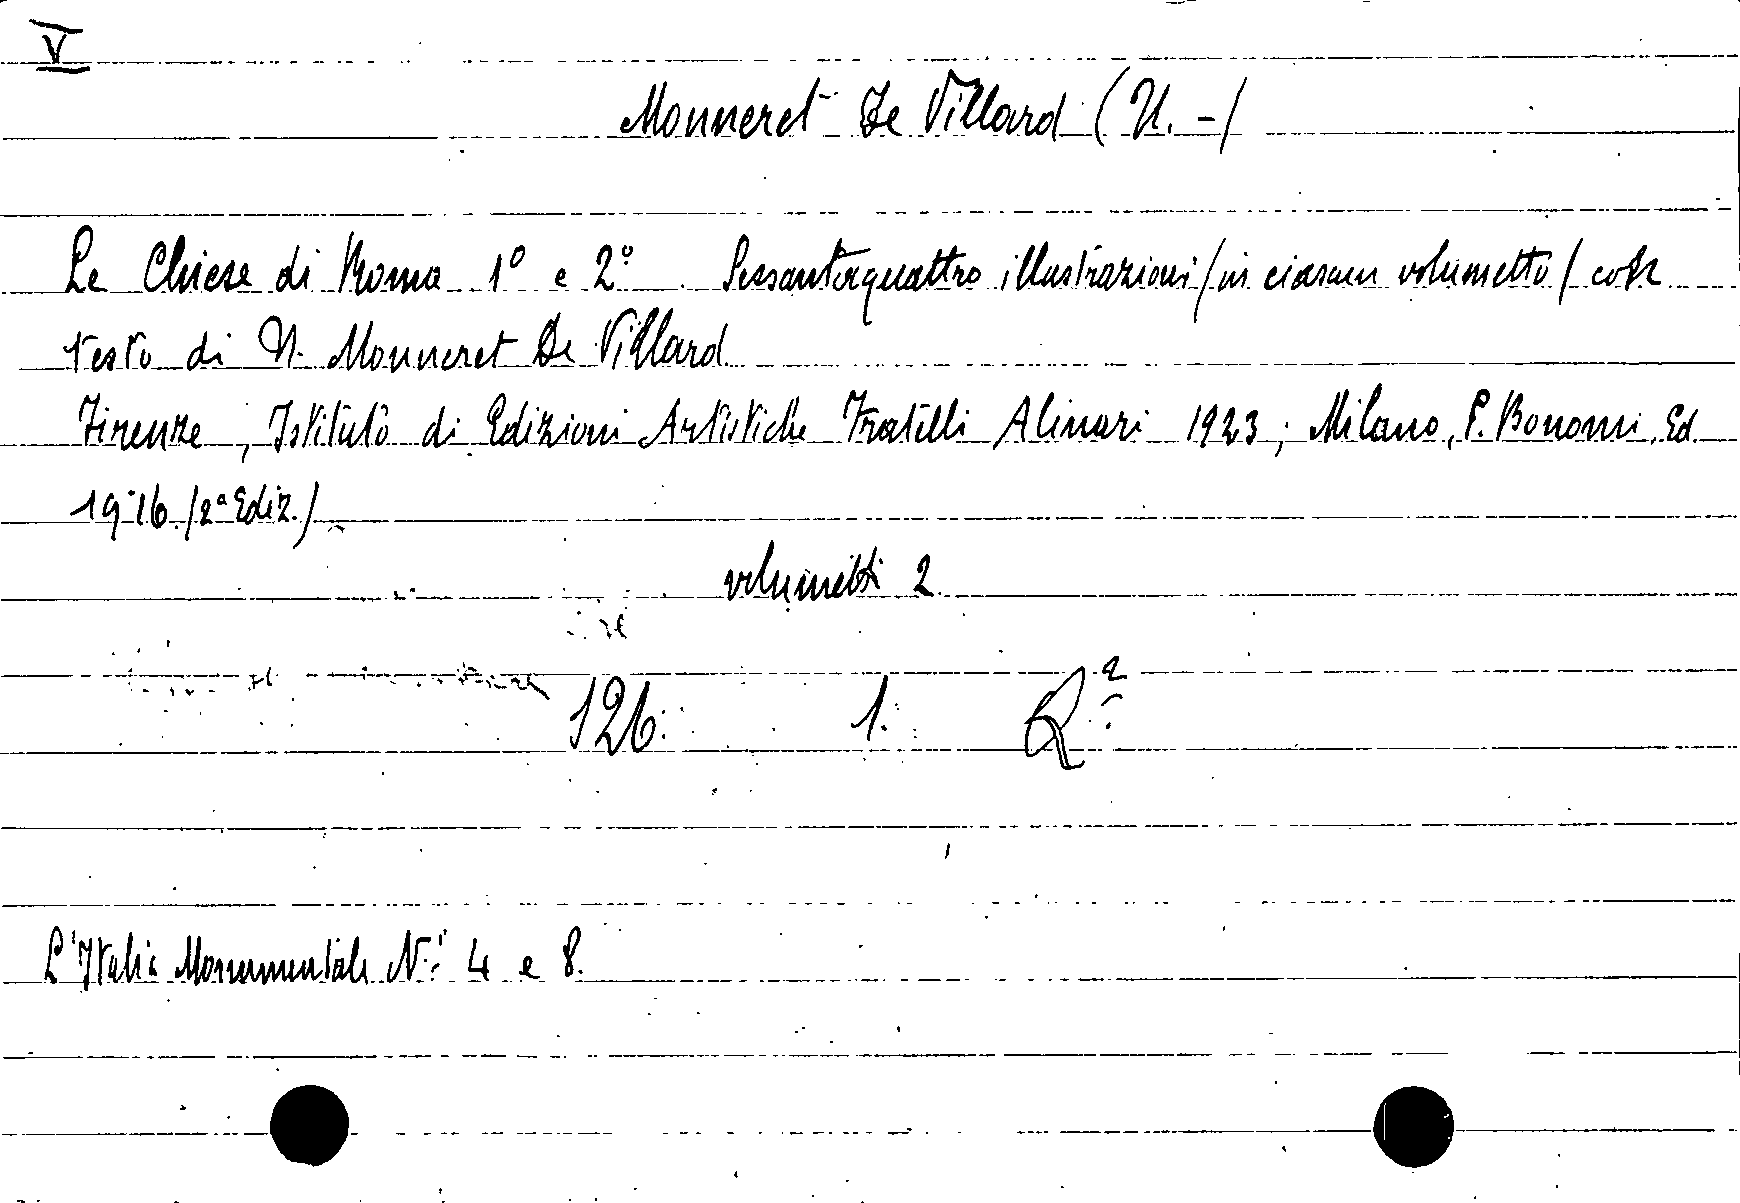 V
Monneret De Villard (U. -)
Le Chiese di Roma 1° e 2°. Sessantaquattro illustrazioni (in ciascun volumetto) con
testo di U. Monneret De Villard
Firenze, Istituto di Edizioni Artistiche Fratelli Alinari 1923; Milano, E. Bonomi, Ed.
1916. (2ª Ediz.).
volumetti 2.
126. 1. R.2
L'Italia Monumentale N.i 4 e 8.